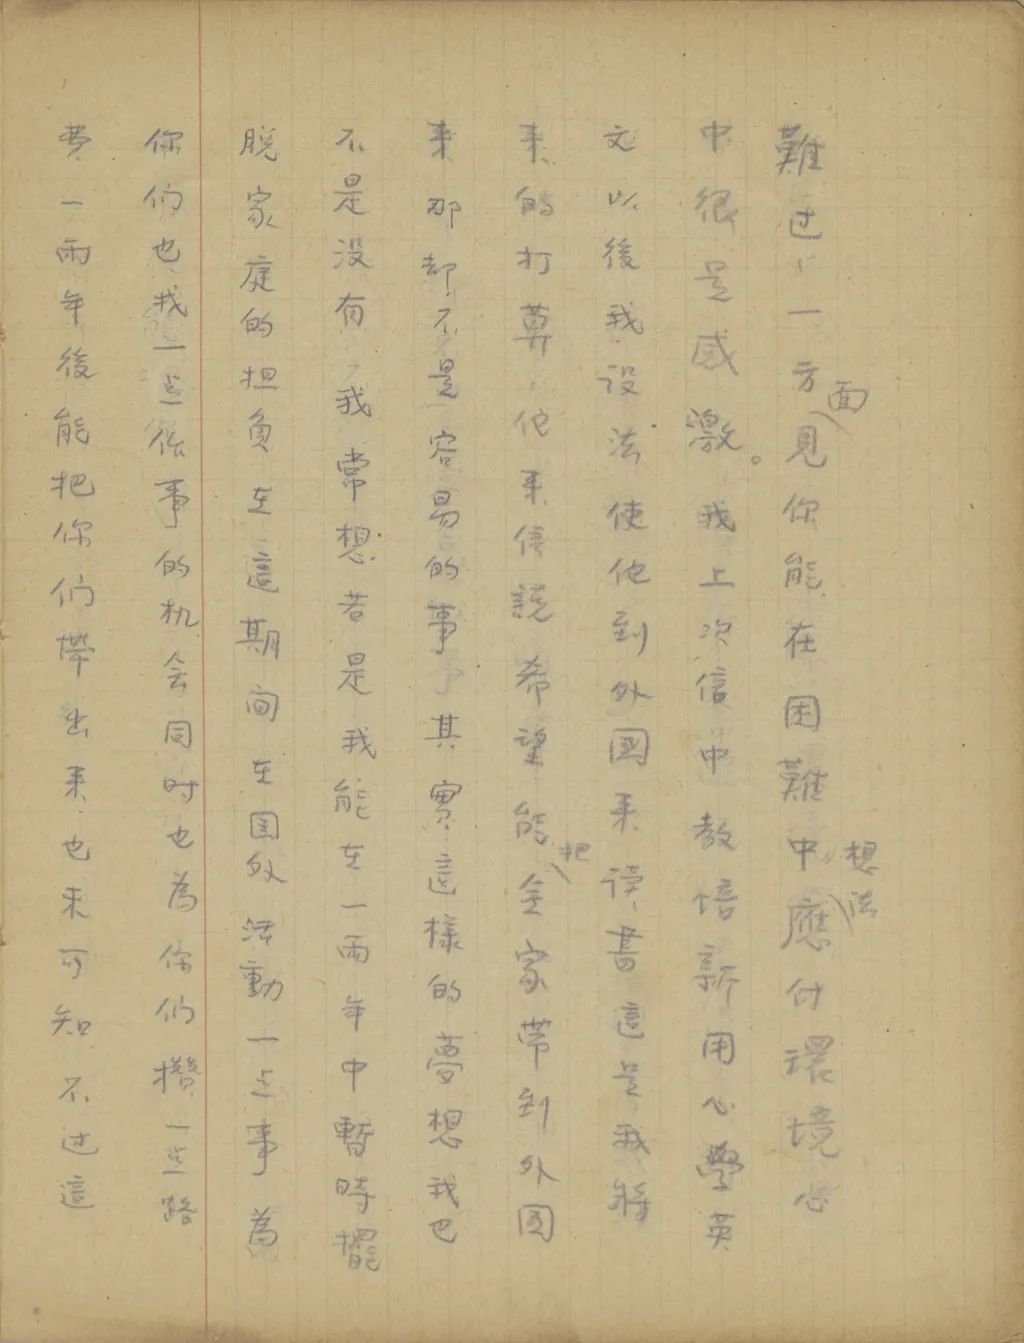 難过，一方面見你能在困難中想法應付環境心
中很是感激。我上次信中教培新用心學英
文以後我设法使他到外國来读書這是我将
来的打算，他来信説希望能把全家带到外国
来那却不是容易的事其實這樣的夢想我也
不是没有，我常想若是我能在一兩年中暫時擺
脱家庭的担负在這期间在国外活動一点事為
你们也找一点做事的机会同时也為你们攒一点路
费一兩年後能把你们帶出来也未可知不过這